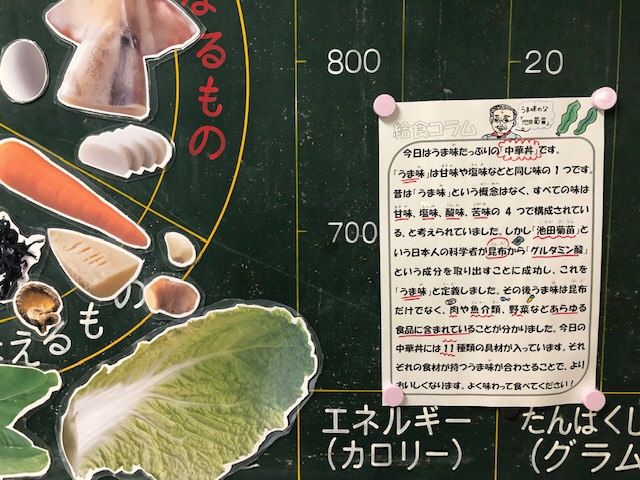 なるもの
800
20
うま味の父
「池田菊苗」
給食コラム
今日はうま味たっぷりの「中華丼」です。
「うま味」は甘味や塩味などと同じ味の1つです。
昔は「うま味」という概念はなく、すべての味は
甘味、塩味、酸味、苦味の4つで構成されてい
る、と考えられていました。しかし「池田菊苗」と
いう日本人の科学者が昆布から「グルタミン酸」
という成分を取り出すことに成功し、これを
「うま味」と定義しました。その後うま味は昆布
だけでなく、肉や魚介類、野菜などあらゆる
食品に含まれていることが分かりました。今日の
中華丼には11種類の具材が入っています。それ
ぞれの食材が持つうま味が合わさることで、より
おいしくなります。よく味わって食べてください!
700
えるもの
エネルギー
(カロリー)
たんぱくし
(グラム